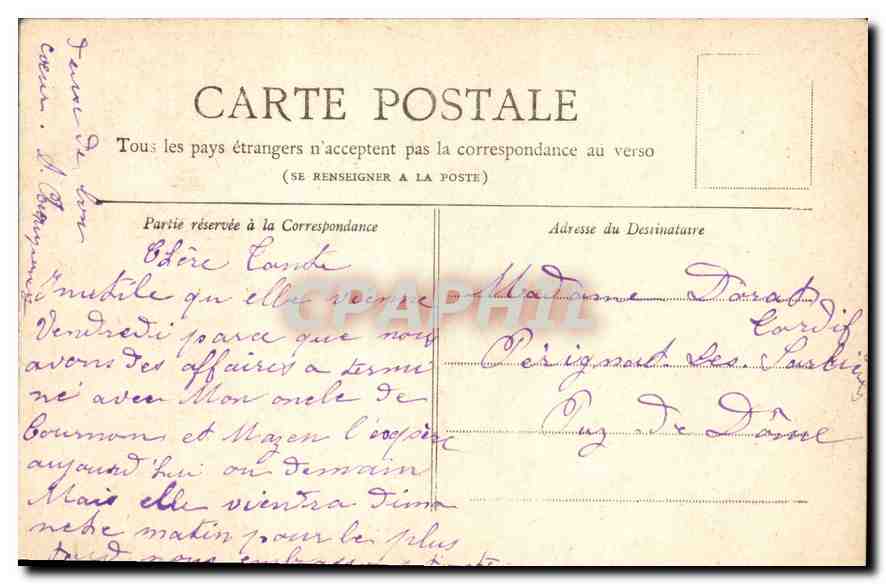 CARTE POSTALE
Tous les pays étrangers n'acceptent pas la correspondance au verso
(SE RENSEIGNER A LA POSTE)
Partie réservée à la Correspondance
Chère Tante
Inutile qu elle vienne
Vendredi parce que nous
avons des affaires a termi
né avec Mon oncle de
Cournon et Mazen l'éspère
aujourd'hui ou demain
Mais elle viendra dima
nche matin pour le plus
tard nous
de bon
coeur.
Adresse du Destinataire
Madame Dorat
Cordif
Pérignat. Les. Sarlièves
Puy de Dôme
CPAPHIL